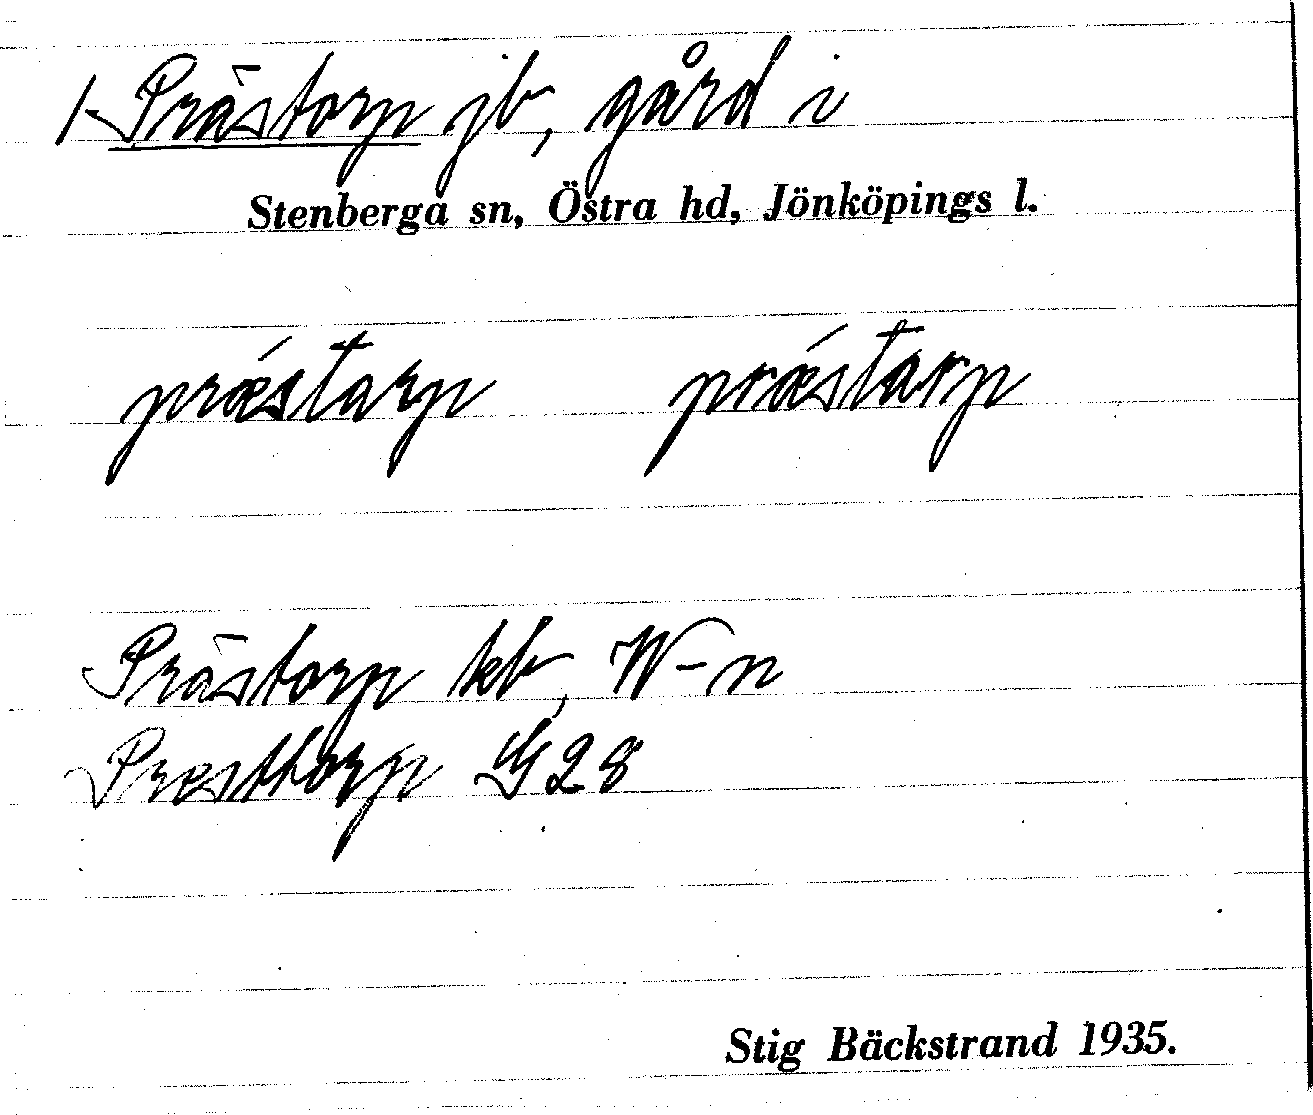 1 Prästorp jb, gård i
Stenberga sn, Östra hd, Jönköpings l.
præ´storp præ´storp
Prästorp kb, W-n
Presttorp G28
Stig Bäckstrand 1935.